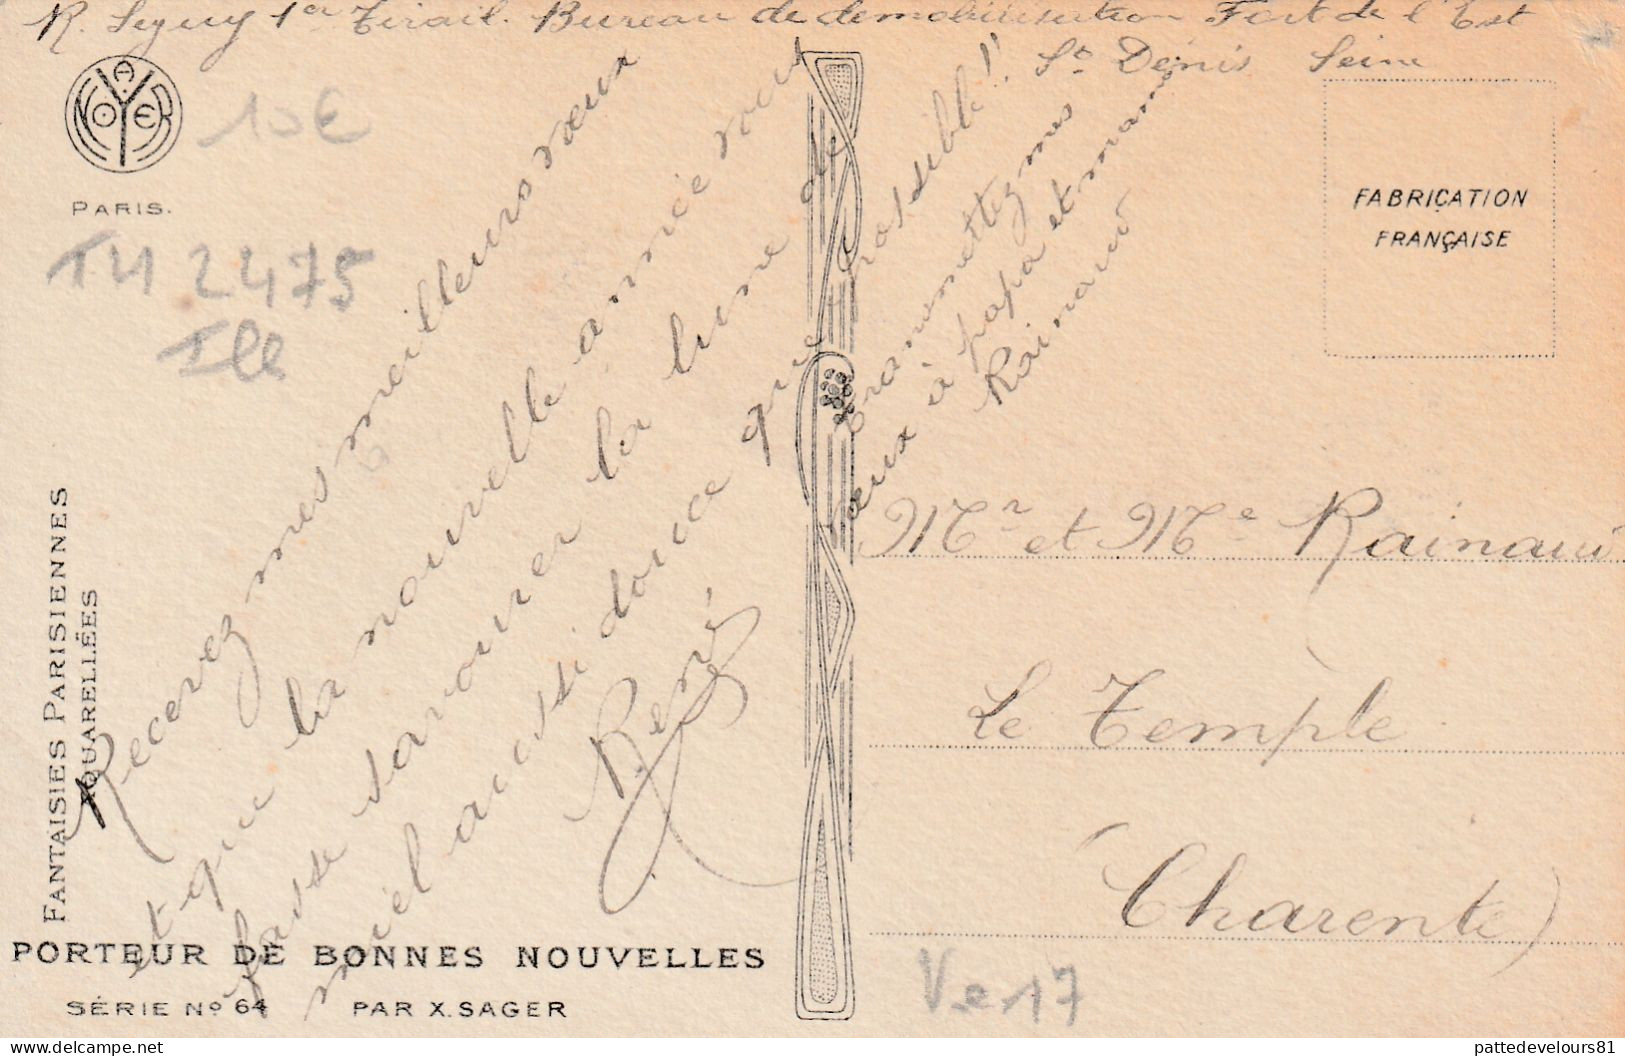 R. Seguy 1er Tirail. Bureau de démobilisation Fort de l'Est
St Denis Seine
KOYER
PARIS.
10€
TH 2475
Ill
FANTAISIES PARISIENNES
AQUARELLÉES
Recevez mes meilleurs vœux
et que la nouvelle année vous
fasse savourer la lune de
miel aussi douce que possible!!
René
Transmettez mes
vœux à papa et maman
Rainaud
FABRICATION
FRANÇAISE
Mr et Me Rainaud
Le Temple
(Charente)
PORTEUR DE BONNES NOUVELLES
SÉRIE No 64 PAR X. SAGER
Ve 17
pattedevelours81